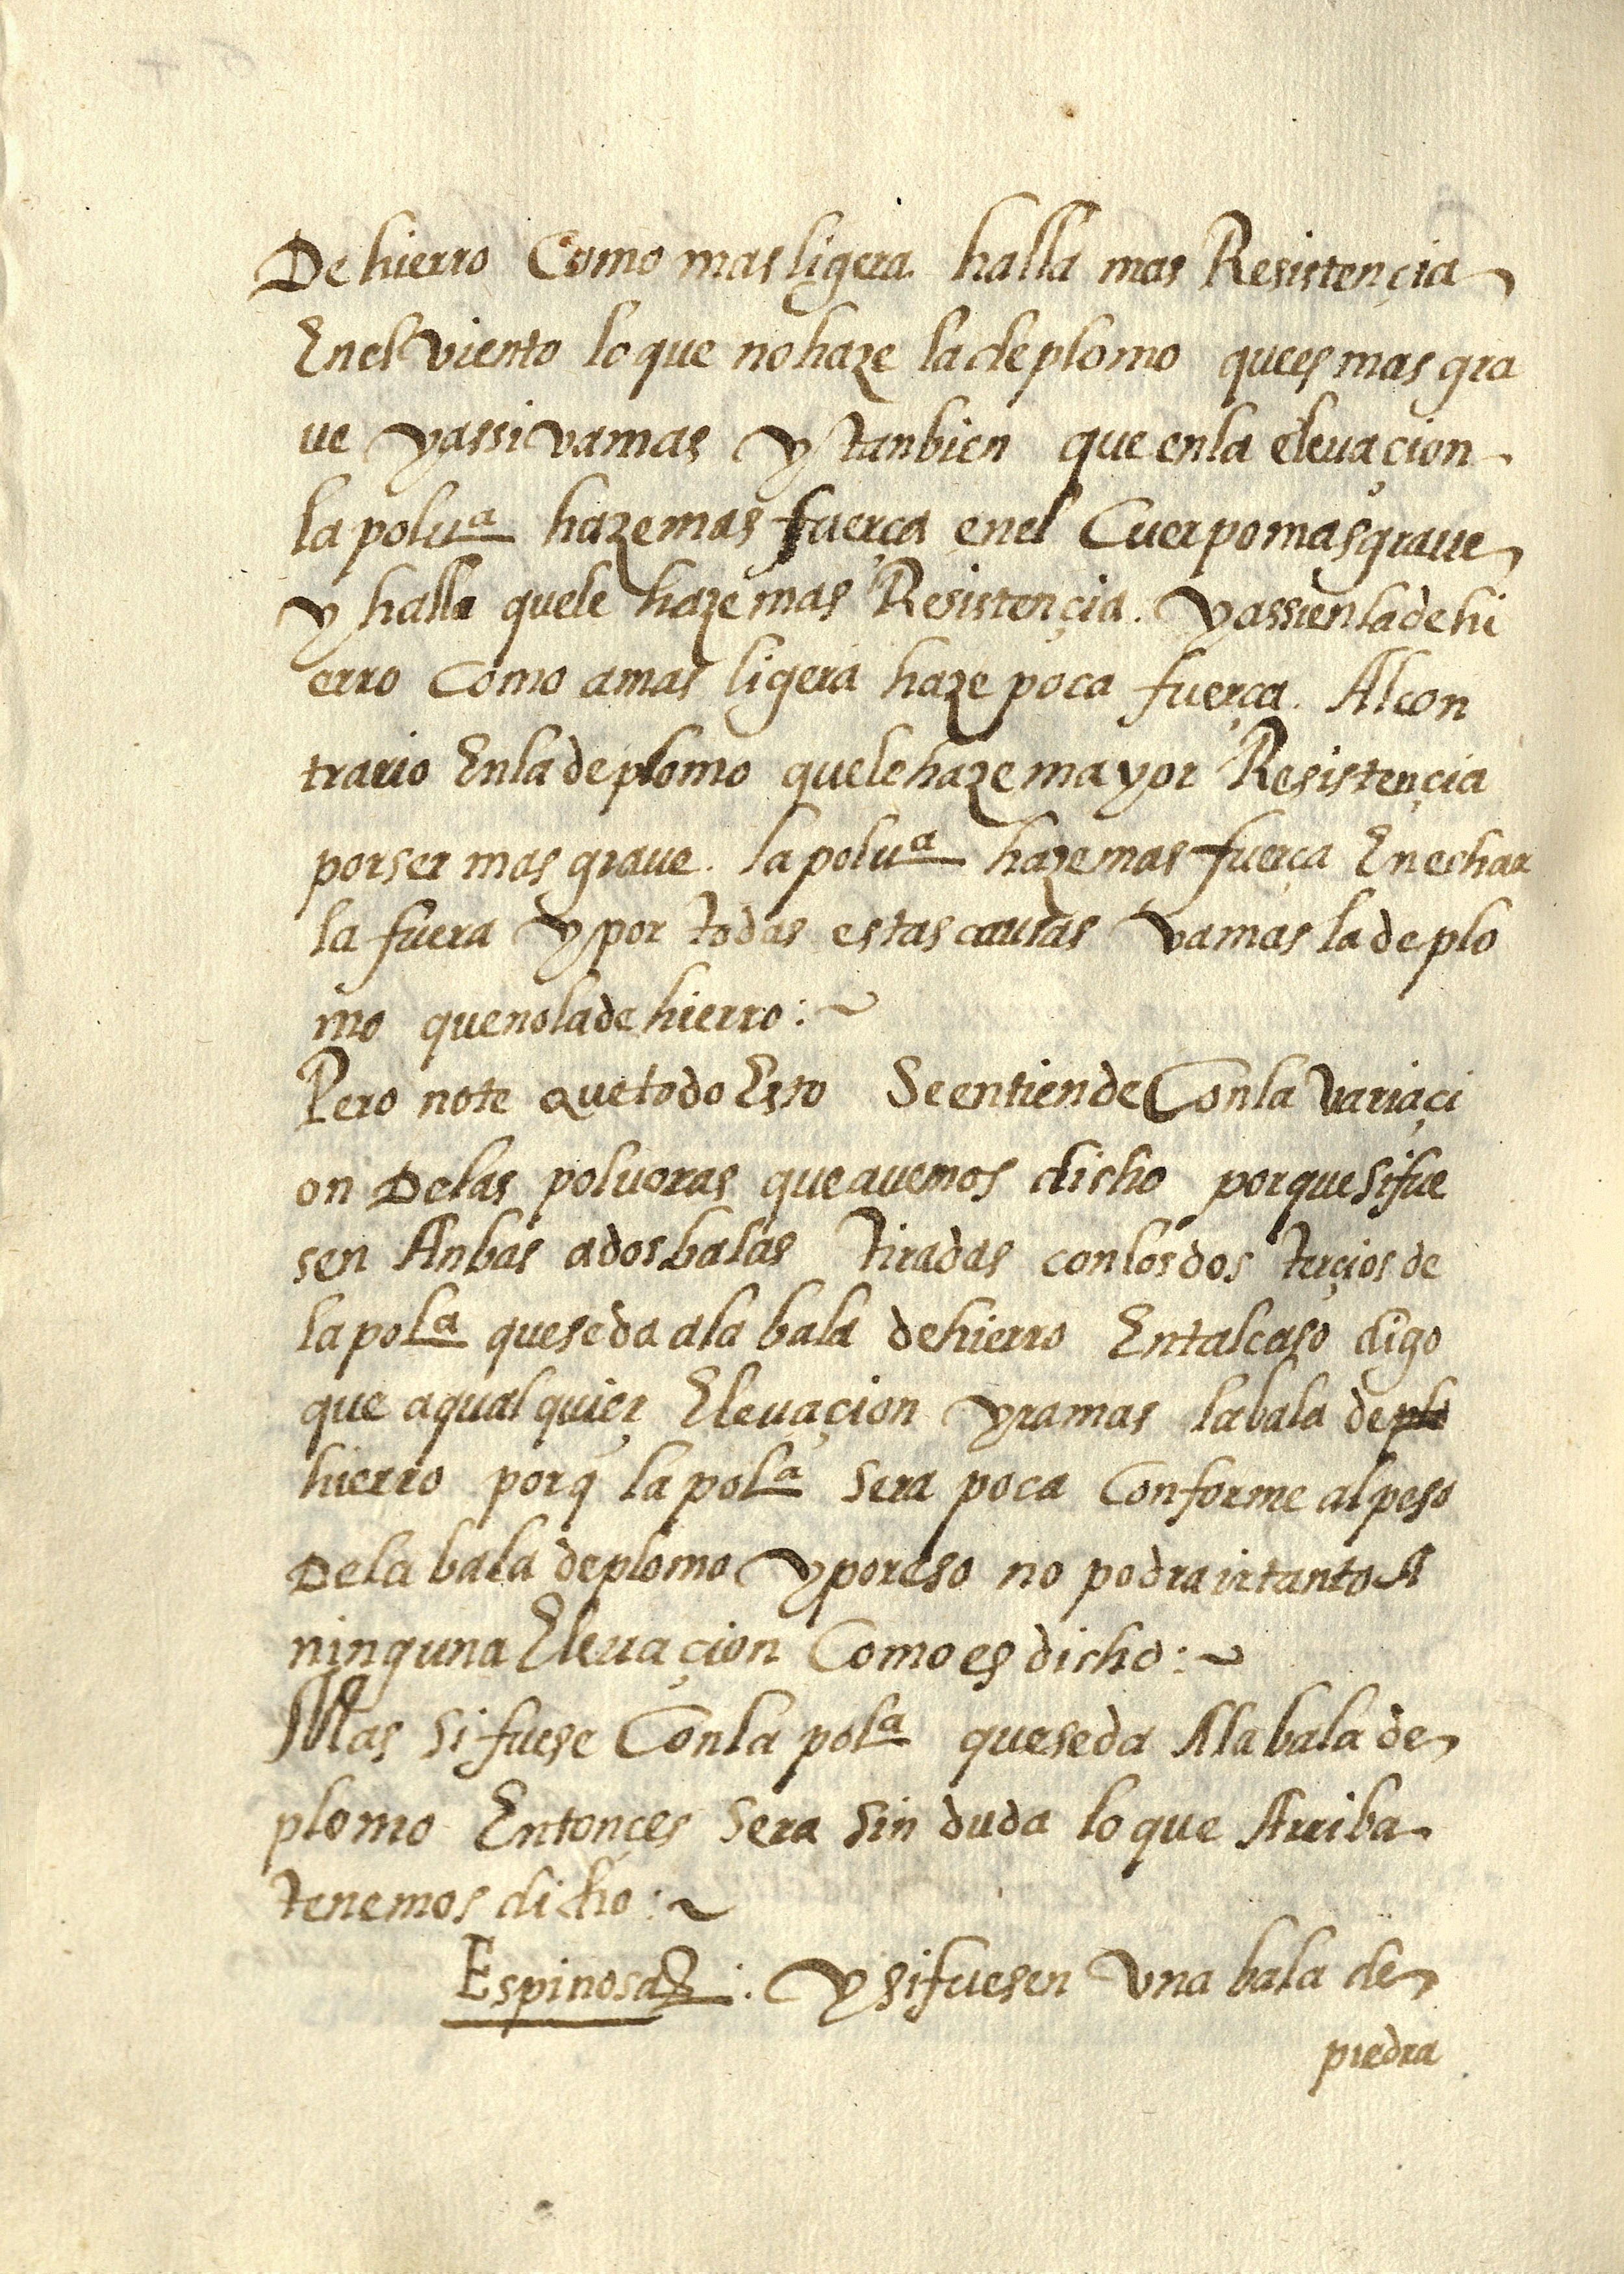 De hierro Como mas ligera halla mas Resistençia
En el viento lo que no haze la de plomo que es mas gra
ue y assi va mas y tanbien que en la eleuaçion
la polu^a haze mas fuerça en el Cuerpo mas graue
y halla que le haze mas Resistençia. y assi en la de hi
erro como a mas ligera haze poca fuerça. Al con
trario En la de plomo que le haze mayor Resistençia
por ser mas graue. la polu^a haze mas fuerça En echar
la fuera y por todas estas causas va mas la de plo
mo que no la de hierro :~
Pero note que todo Esto Se entiende Con la variaçi
on De las poluoras que auemos dicho porque si fue
sen Anbas a dos balas tiradas con los dos terçios de
la pol^a que se da a la bala de hierro En tal caso digo
que a qual quier Eleuaçion yra mas la bala de
hierro porq la pol^a sera poca Conforme al peso
De la bala de plomo y por eso no podra ir tanto A
ninguna Eleuaçion Como es dicho :~
Mas si fuese Con la pol^a que se da A la bala de
plomo Entonçes Sera Sin duda lo que Arriba
tenemos dicho :~
Espinosa : y si fuesen vna bala de
piedra